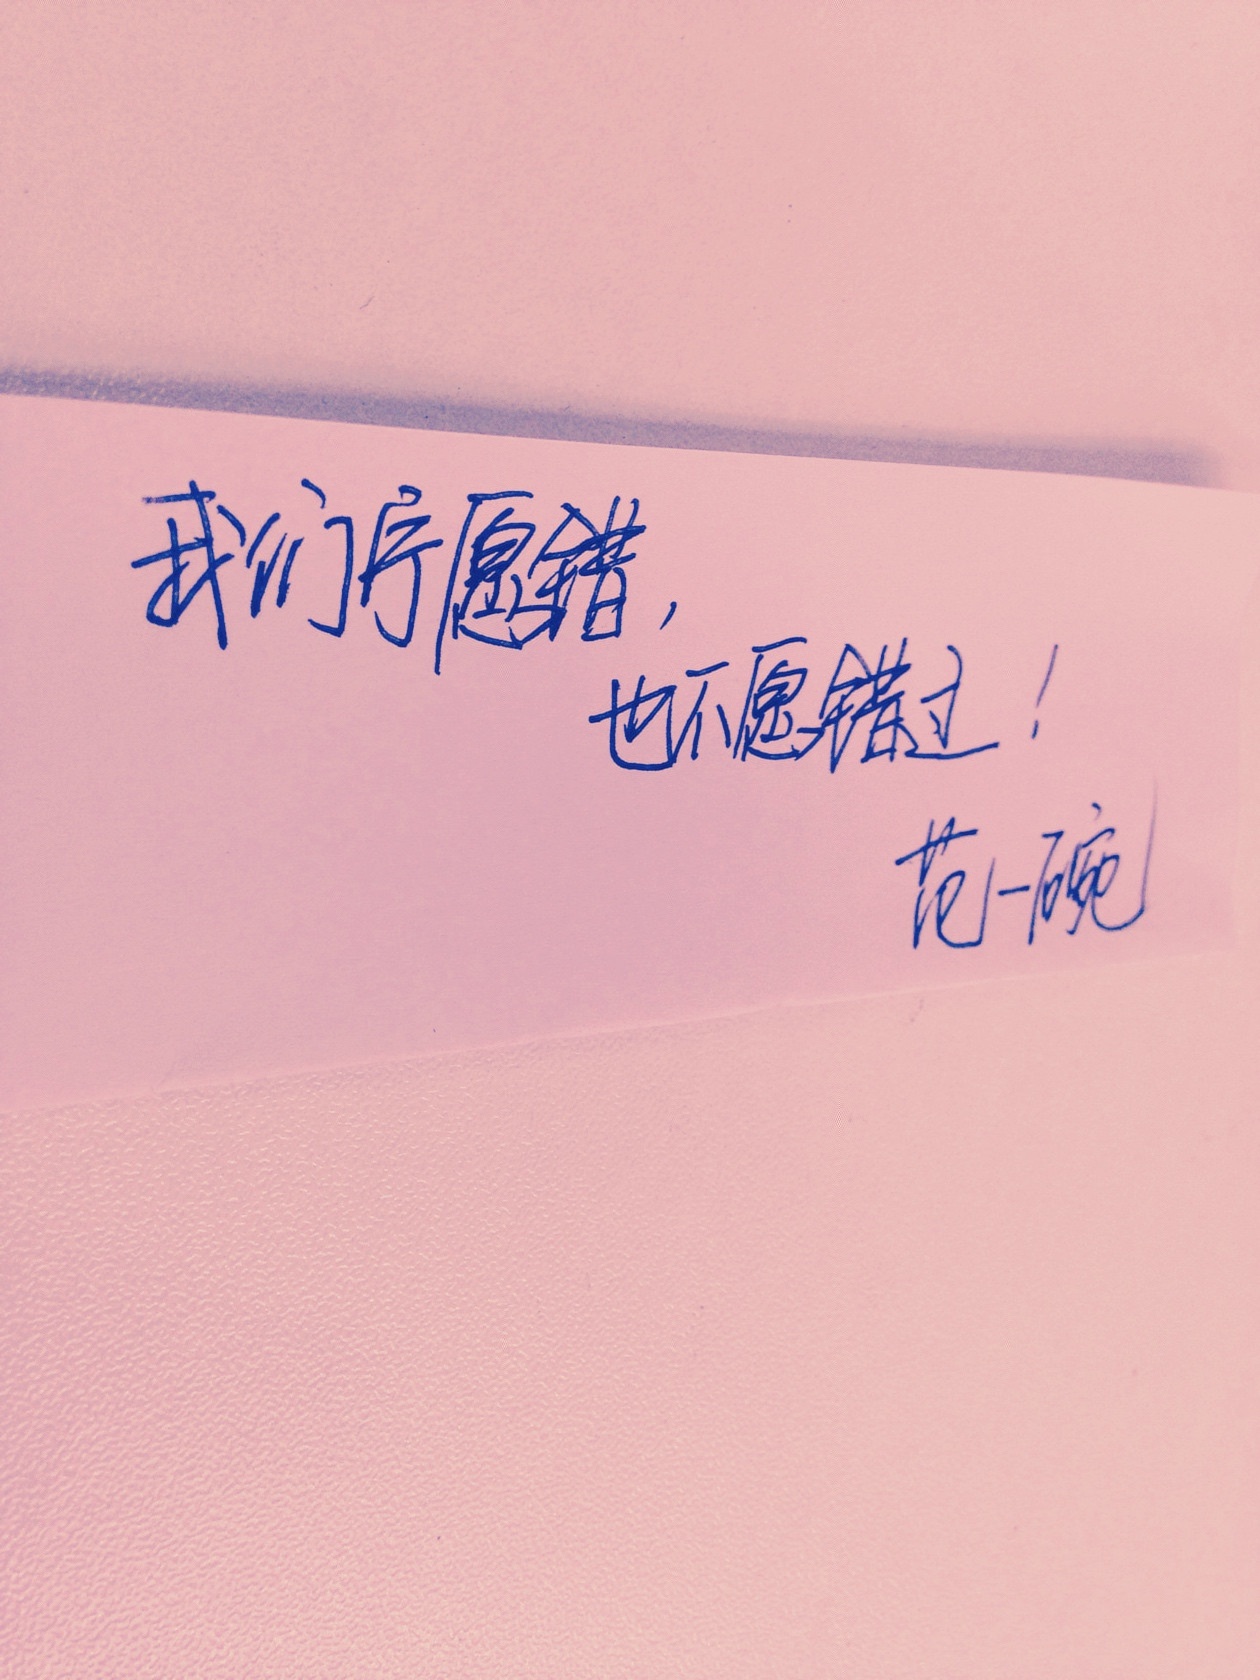 我们宁愿错，
也不愿错过！
范一碗